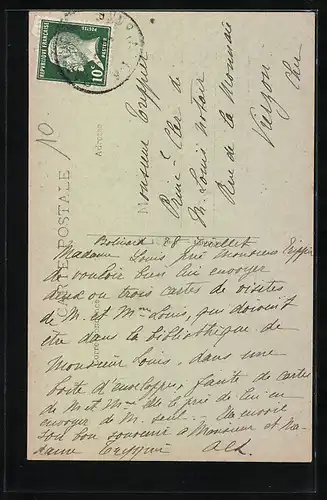 RÉPUBLIQUE FRANÇAISE
POSTES
10c
10
CARTE POSTALE
Correspondance
Adresse
Monsieur
Princ. Clerc de
M. Louis notaire
Rue de la Monnaie
Vierzon
Cher
28 Juillet
Madame Louis prie Monsieur
de vouloir bien lui envoyer
deux ou trois cartes de visites
de M. et Mme Louis, qui doivent
être dans la bibliothèque de
Monsieur Louis, dans une
boite d'enveloppes, faute de cartes
de M et Mme elle le prie de lui en
envoyer de M. seul
son bon souvenir à Monsieur et Ma-
dame